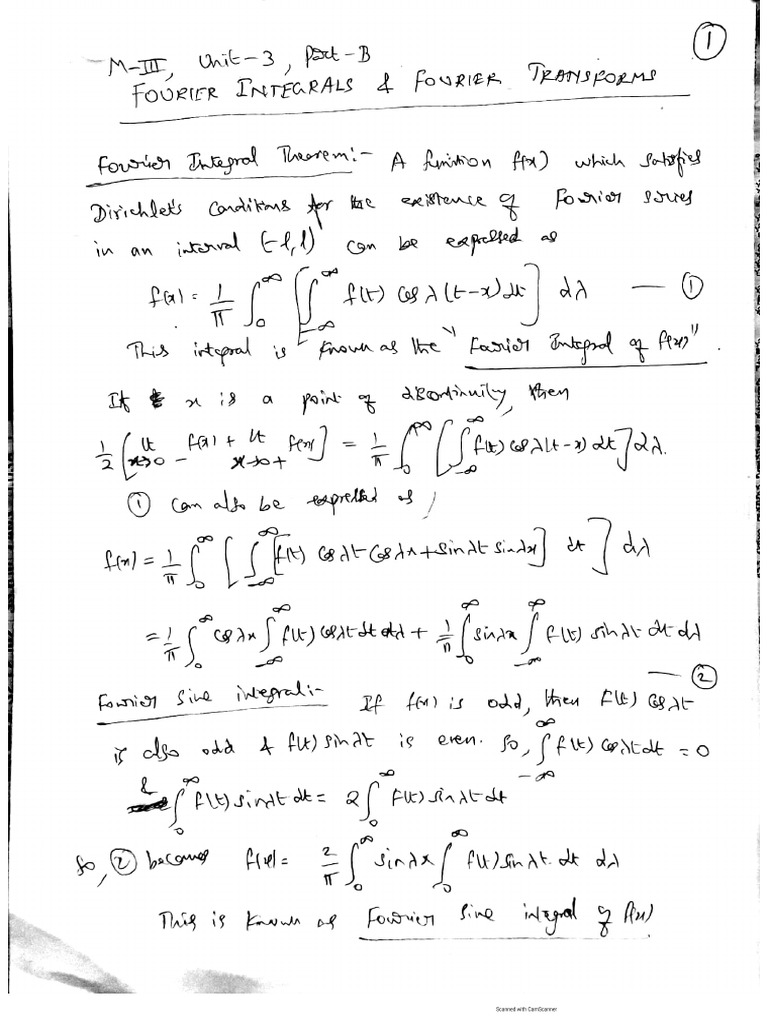 ①
M-III, Unit-3, Part-B
FOURIER INTEGRALS & FOURIER TRANSFORMS
Fourier Integral Theorem:- A function f(x) which satisfies
Dirichlet's Conditions for the existence of Fourier series
in an interval (-l,l) can be expressed as
f(x) = 1/π ∫_0^∞ [∫_{-∞}^∞ f(t) cos λ(t-x) dt] dλ — ①
This integral is known as the "Fourier Integral of f(x)".
If x is a point of discontinuity, then
1/2 [lt_{x→0-} f(x) + lt_{x→0+} f(x)] = 1/π ∫_0^∞ [∫_{-∞}^∞ f(t) cos λ(t-x) dt] dλ.
① can also be expressed as,
f(x) = 1/π ∫_0^∞ [∫_{-∞}^∞ [f(t) cos λt cos λx + sin λt sin λx] dt] dλ
= 1/π ∫_0^∞ cos λx ∫_{-∞}^∞ f(t) cos λt dt dλ + 1/π ∫_0^∞ sin λx ∫_{-∞}^∞ f(t) sin λt dt dλ
— ②
Fourier Sine integral:- If f(x) is odd, then f(t) cos λt
is also odd & f(t) sin λt is even. So, ∫_{-∞}^∞ f(t) cos λt dt = 0
& ∫_0^∞ f(t) sin λt dt = 2 ∫_0^∞ f(t) sin λt dt
So, ② becomes f(x) = 2/π ∫_0^∞ sin λx ∫_0^∞ f(t) sin λt dt dλ
This is known as Fourier Sine integral of f(x)
Scanned with CamScanner